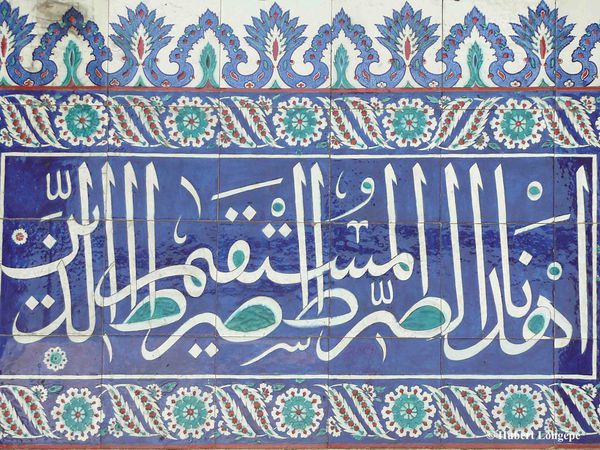 اهدنا الصّراط المستقيم صراط الذين
© Hubert Longépé